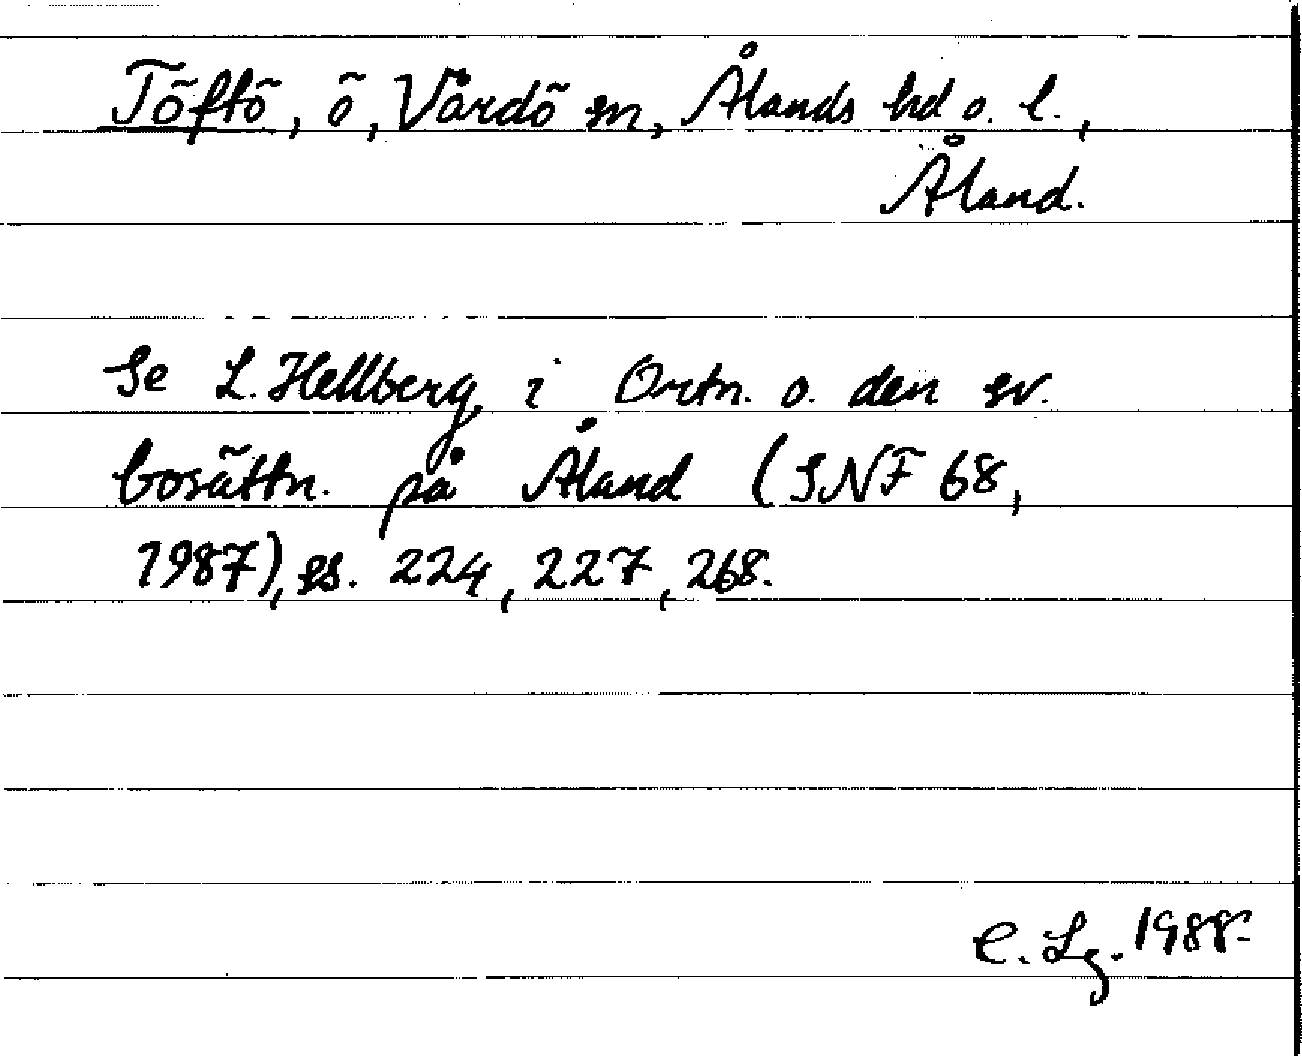 Töftö, ö, Vårdö sn, Ålands hd o. l.,
Åland.
Se L. Hellberg i Ortn. o. den sv.
bosättn. på Åland (SNF 68,
1987), ss. 224, 227, 268.
C. Lg. 1988.